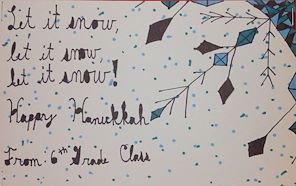 Let it snow,
let it snow,
let it snow!
Happy Hanukkah
From: 6th Grade Class